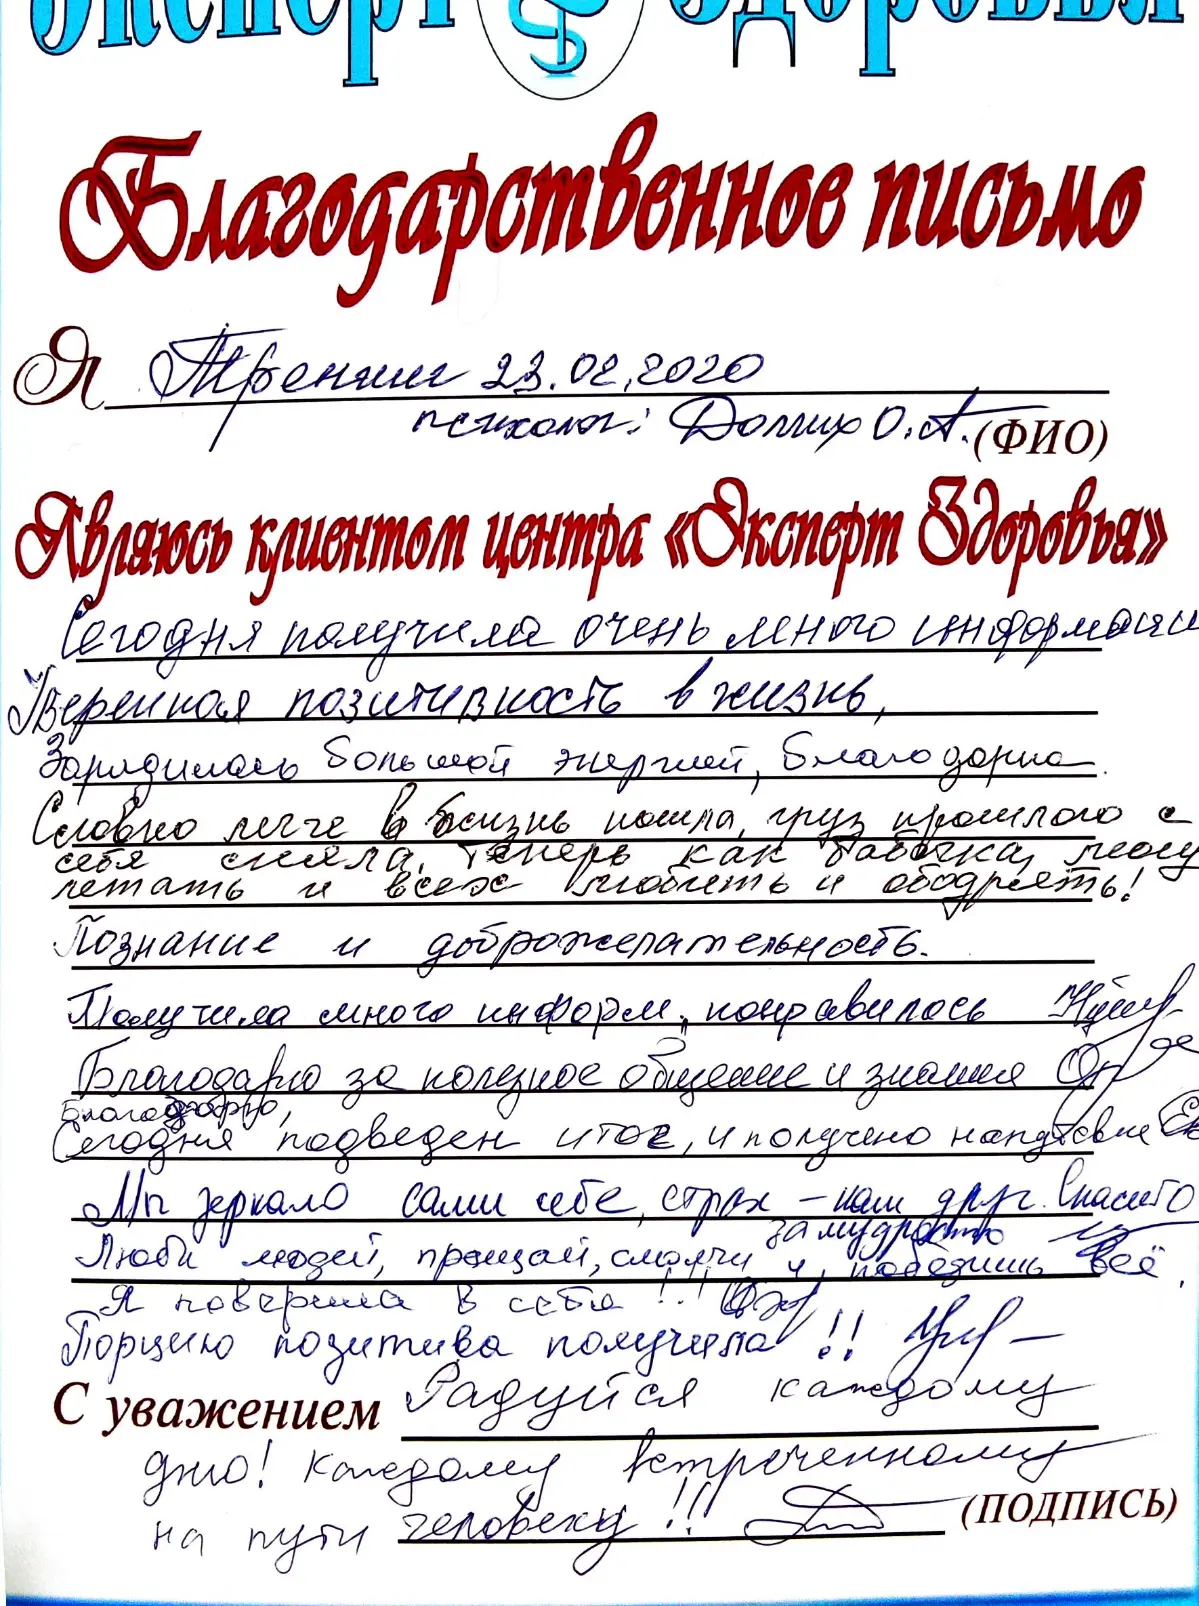 Эксперт Здоровья
Благодарственное письмо
Я Тренинг 23.02.2020
психолог: Долгих О.А. (ФИО)
Являюсь клиентом центра «Эксперт Здоровья»
Сегодня получила очень много информации
Уверенная позитивность в жизнь,
Зарядилась большой энергией, благодарна.
Словно легче в жизнь пошла, груз прошлого с
себя сняла. Теперь как бабочка, могу
летать и всех любить и ободрять!
Познание и доброжелательность.
Получила много информ, понравилось
Благодарю за полезное общение и знания
Благодарю,
Сегодня подведен итог, и получено напутствие
Мы зеркало сами себе, страх – наш друг. Спасибо
за мудрость
Люби людей, прощай, смолчи и победишь всё.
Я поверила в себя!!!
Порцию позитива получила!!!
С уважением Радуйся каждому
дню! Каждому встреченному
на пути человеку!!! (ПОДПИСЬ)